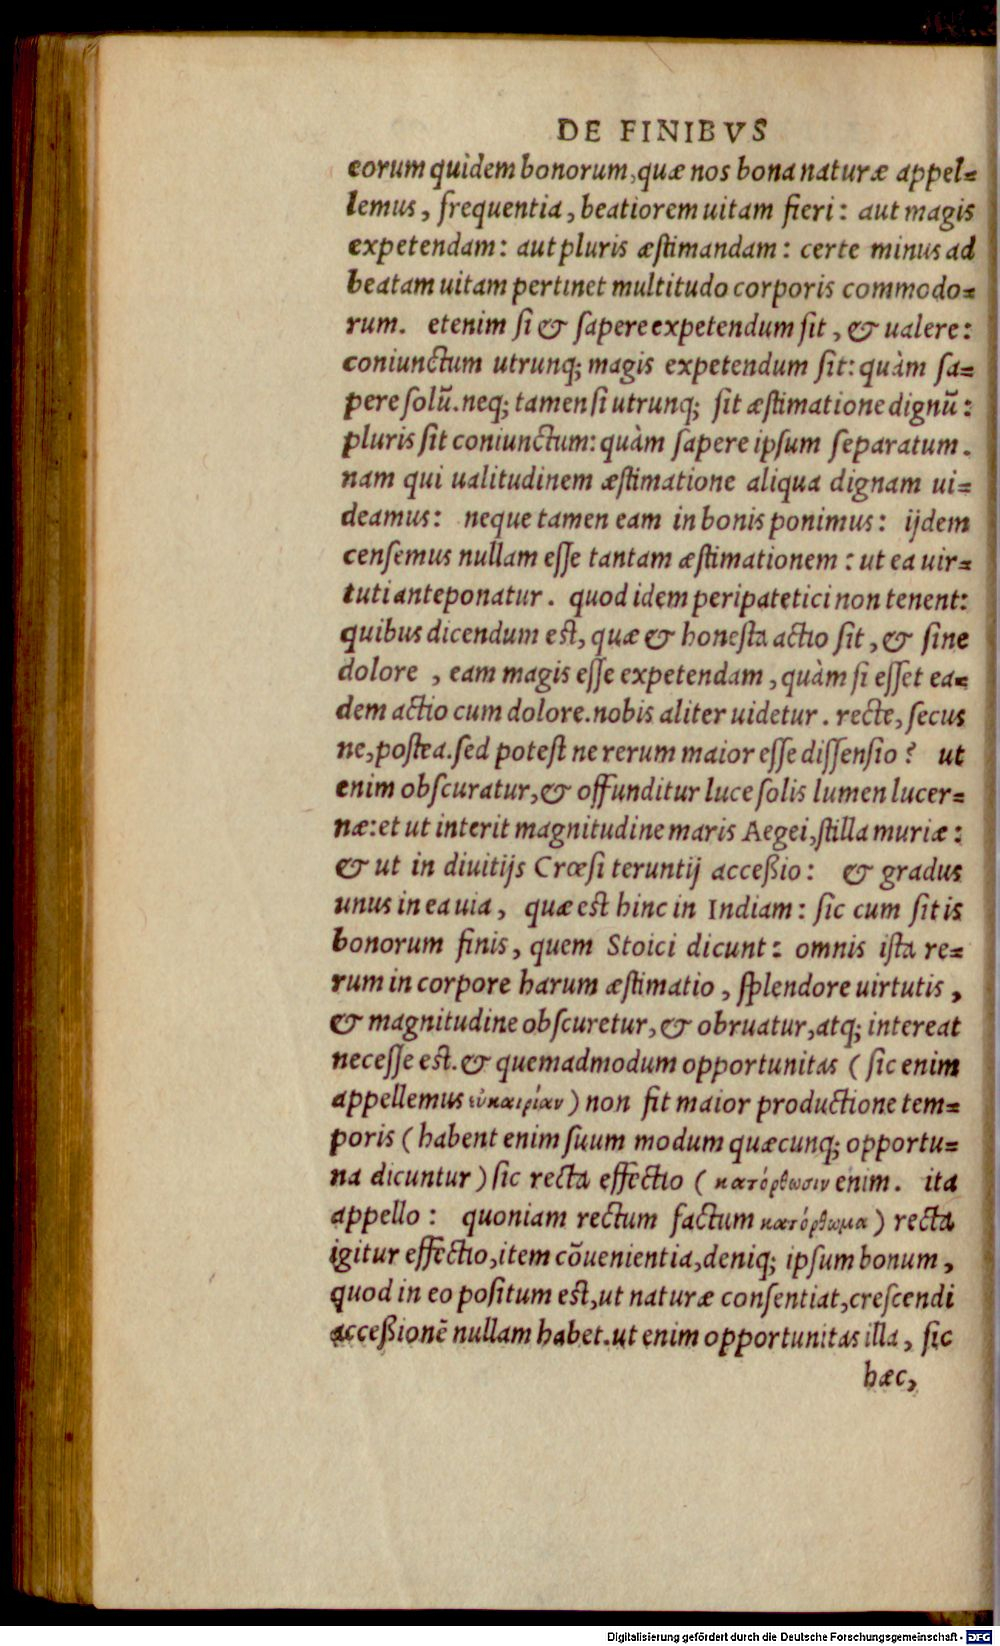 DE FINIBVS
eorum quidem bonorum, quæ nos bona naturæ appel=
lemus, frequentia, beatiorem uitam fieri: aut magis
expetendam: aut pluris æstimandam: certe minus ad
beatam uitam pertinet multitudo corporis commodo=
rum. etenim si & sapere expetendum sit, & ualere:
coniunctum utrunq; magis expetendum sit: quàm sa=
pere solũ. neq; tamen si utrunq; sit æstimatione dignũ:
pluris sit coniunctum: quàm sapere ipsum separatum.
nam qui ualitudinem æstimatione aliqua dignam ui=
deamus: neque tamen eam in bonis ponimus: ijdem
censemus nullam esse tantam æstimationem: ut ea uir=
tuti anteponatur. quod idem peripatetici non tenent:
quibus dicendum est, quæ & honesta actio sit, & sine
dolore , eam magis esse expetendam, quàm si esset ea=
dem actio cum dolore. nobis aliter uidetur. recte, secus
ne, postea. sed potest ne rerum maior esse dissensio? ut
enim obscuratur, & offunditur luce solis lumen lucer=
næ: et ut interit magnitudine maris Aegei, stilla muriæ:
& ut in diuitijs Crœsi teruntij accessio: & gradus
unus in ea uia, quæ est hinc in Indiam: sic cum sit is
bonorum finis, quem Stoici dicunt: omnis ista re=
rum in corpore harum æstimatio, splendore uirtutis,
& magnitudine obscuretur, & obruatur, atq; intereat
necesse est. & quemadmodum opportunitas (sic enim
appellemus εὐκαιρίαν) non fit maior productione tem=
poris (habent enim suum modum quæcunq; opportu=
na dicuntur) sic recta effectio (κατόρθωσιν enim. ita
appello: quoniam rectum factum κατόρθωμα) recta
igitur effectio, item cõuenientia, deniq; ipsum bonum,
quod in eo positum est, ut naturæ consentiat, crescendi
accessionẽ nullam habet. ut enim opportunitas illa, sic
hæc,
Digitalisierung gefördert durch die Deutsche Forschungsgemeinschaft - DFG